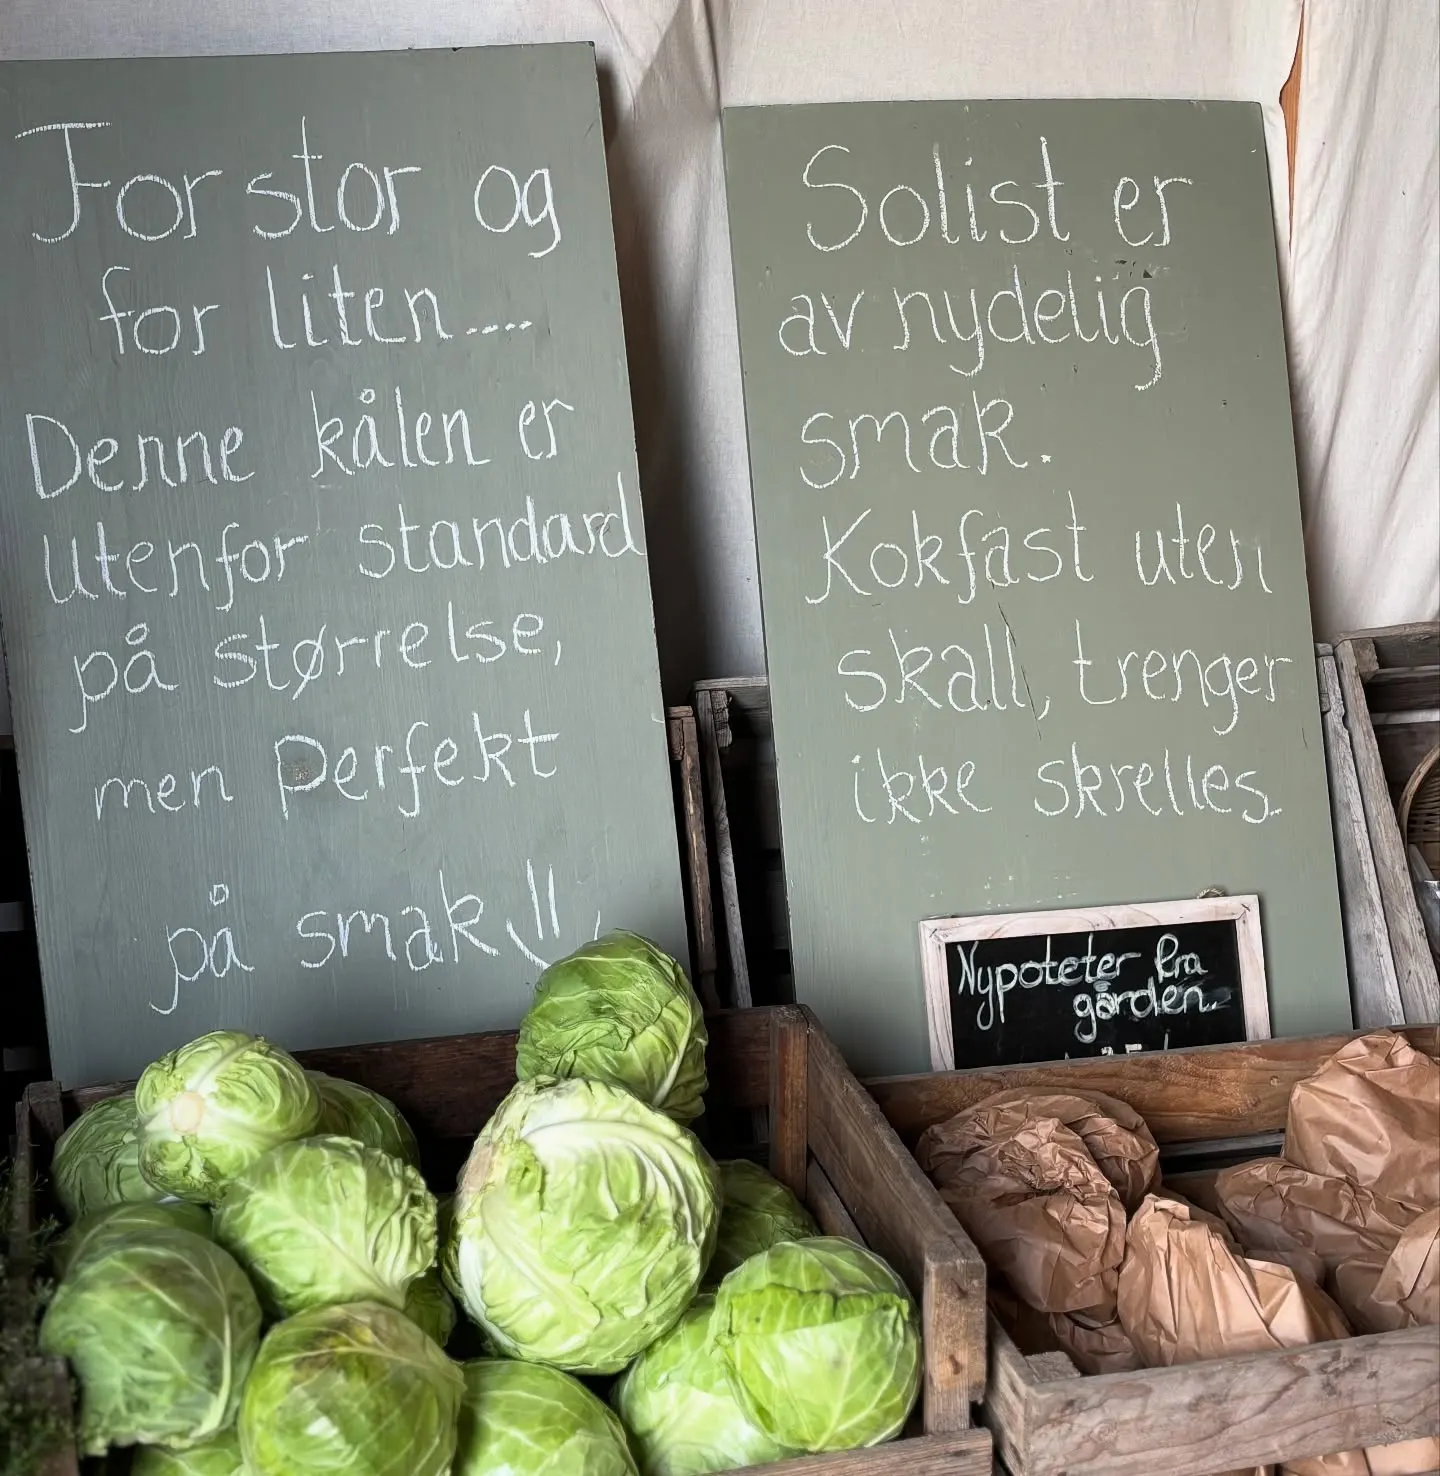 For stor og
for liten....
Denne kålen er
utenfor standard
på størrelse,
men perfekt
på smak!!
Solist er
av nydelig
smak.
Kokfast uten
skall, trenger
ikke skrelles.
Nypoteter fra
gården.